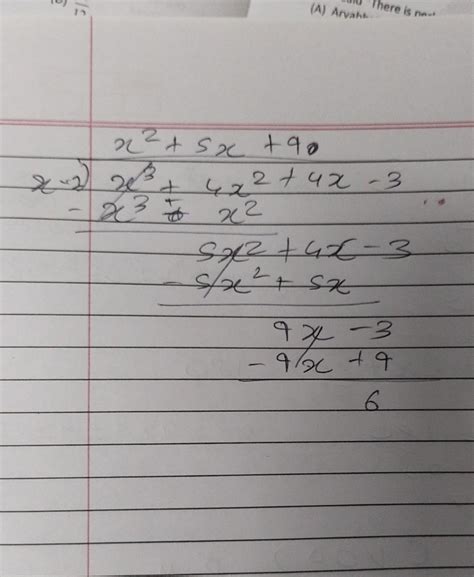 (A) Aryabh
There is
x² + 5x + 9
x-2) x³ + 4x² + 4x - 3
- x³ + x²
5x² + 4x - 3
- 5x² + 5x
9x - 3
- 9x + 9
6